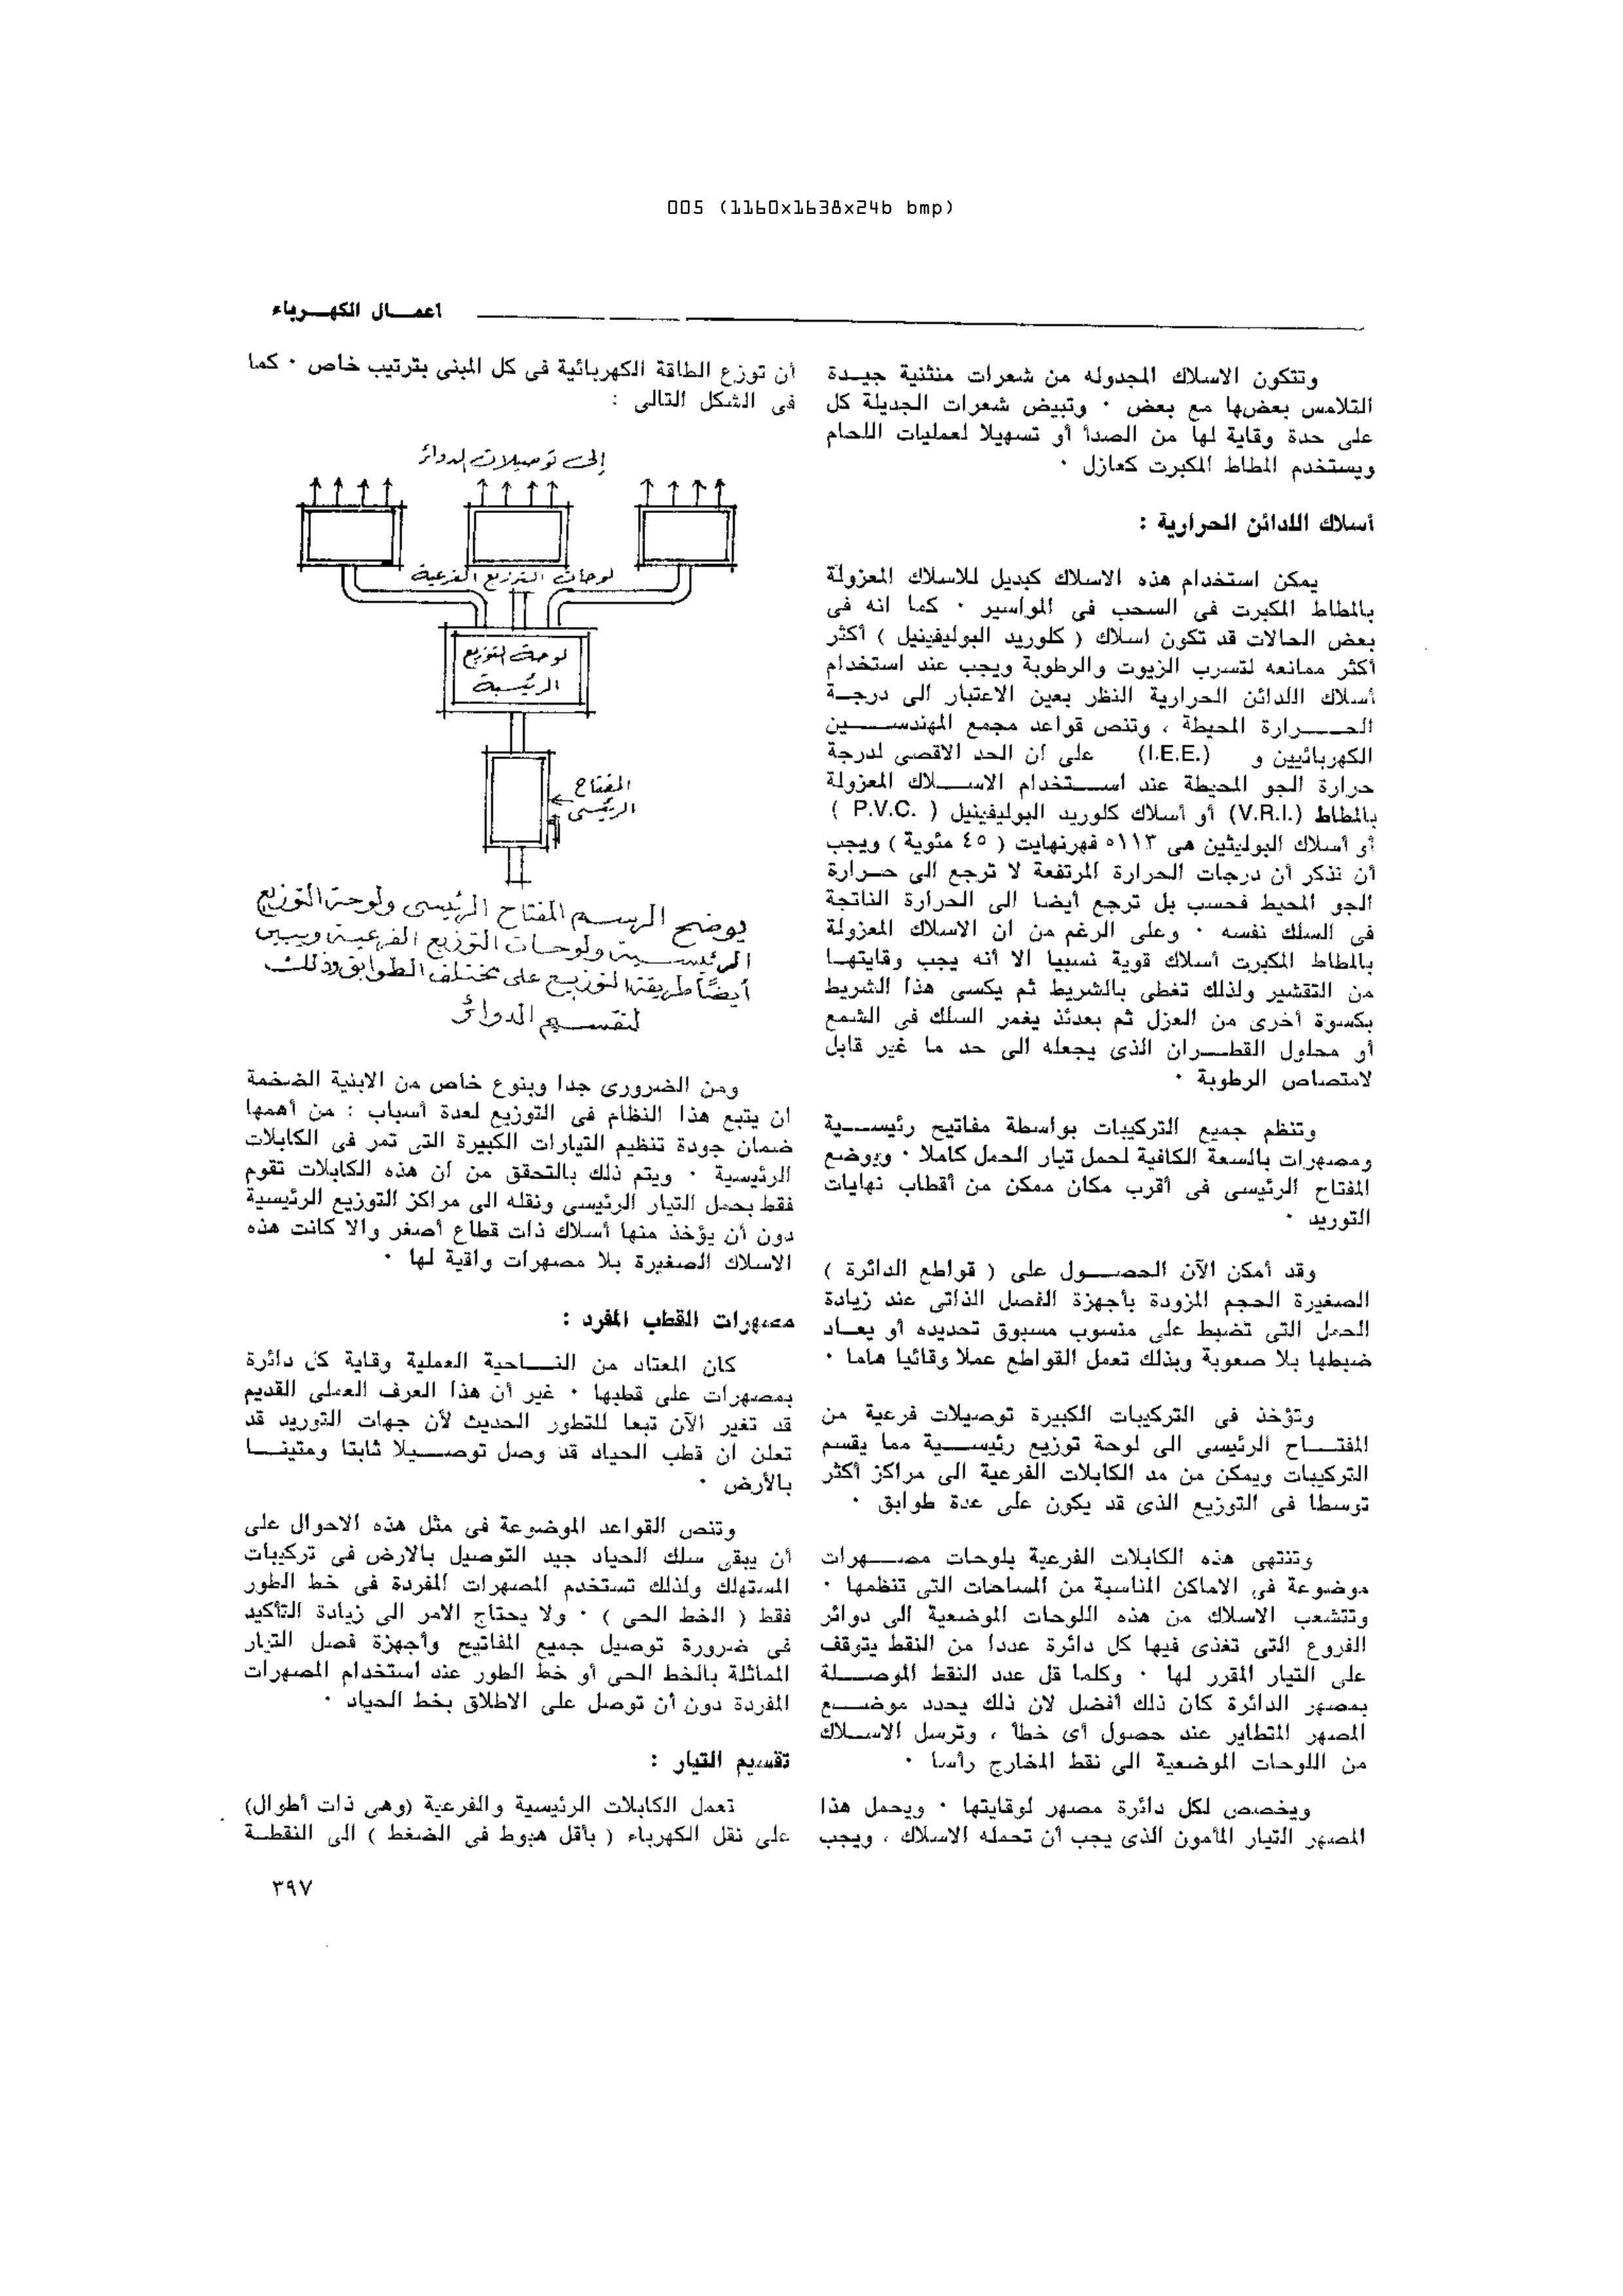 005 (1160x1638x24b bmp)
اعمـــال الكهـــرباء
وتتكون الاسلاك المجدوله من شعرات منثنية جيـدة
التلامس بعضها مع بعض ٠ وتبيض شعرات الجديلة كل
على حدة وقاية لها من الصدأ أو تسهيلا لعمليات اللحام
ويستخدم المطاط المكبرت كعازل ٠
أسلاك اللدائن الحرارية :
يمكن استخدام هذه الاسلاك كبديل للاسلاك المعزولة
بالمطاط المكبرت فى السحب فى المواسير ٠ كما انه فى
بعض الحالات قد تكون اسلاك ( كلوريد البوليفينيل ) أكثر
أكثر ممانعه لتسرب الزيوت والرطوبة ويجب عند استخدام
أسلاك اللدائن الحرارية النظر بعين الاعتبار الى درجـة
الحـــــرارة المحيطة ، وتنص قواعد مجمع المهندســـــين
الكهربائيين و (I.E.E.) على ان الحد الاقصى لدرجة
حرارة الجو المحيطة عند اســـتخدام الاســـلاك المعزولة
بالمطاط (V.R.I.) أو أسلاك كلوريد البوليفينيل ( P.V.C. )
أو أسلاك البوليثين هى ١١٣° فهرنهايت ( ٤٥ مئوية ) ويجب
أن نذكر أن درجات الحرارة المرتفعة لا ترجع الى حـرارة
الجو المحيط فحسب بل ترجع أيضا الى الحرارة الناتجة
فى السلك نفسه ٠ وعلى الرغم من ان الاسلاك المعزولة
بالمطاط المكبرت أسلاك قوية نسبيا الا أنه يجب وقايتهـا
من التقشير ولذلك تغطى بالشريط ثم يكسى هذا الشريط
بكسوة أخرى من العزل ثم بعدئذ يغمر السلك فى الشمع
أو محلول القطـــران الذى يجعله الى حد ما غير قابل
لامتصاص الرطوبة ٠
وتنظم جميع التركيبات بواسطة مفاتيح رئيســـية
ومصهرات بالسعة الكافية لحمل تيار الحمل كاملا ٠ ويوضع
المفتاح الرئيسى فى أقرب مكان ممكن من أقطاب نهايات
التوريد ٠
وقد أمكن الآن الحصـــول على ( قواطع الدائرة )
الصغيرة الحجم المزودة بأجهزة الفصل الذاتى عند زيادة
الحمل التى تضبط على منسوب مسبوق تحديده أو يعـاد
ضبطها بلا صعوبة وبذلك تعمل القواطع عملا وقائيا هاما ٠
وتؤخذ فى التركيبات الكبيرة توصيلات فرعية من
المفتـــاح الرئيسى الى لوحة توزيع رئيســـية مما يقسم
التركيبات ويمكن من مد الكابلات الفرعية الى مراكز أكثر
توسطا فى التوزيع الذى قد يكون على عدة طوابق ٠
وتنتهى هذه الكابلات الفرعية بلوحات مصـــهرات
موضوعة فى الاماكن المناسبة من المساحات التى تنظمها ٠
وتتشعب الاسلاك من هذه اللوحات الموضعية الى دوائر
الفروع التى تغذى فيها كل دائرة عددا من النقط يتوقف
على التيار المقرر لها ٠ وكلما قل عدد النقط الموصـــلة
بمصهر الدائرة كان ذلك أفضل لان ذلك يحدد موضـــع
المصهر المتطاير عند حصول أى خطأ ، وترسل الاســلاك
من اللوحات الموضعية الى نقط المخارج رأسا ٠
ويخصص لكل دائرة مصهر لوقايتها ٠ ويحمل هذا
المصهر التيار المأمون الذى يجب أن تحمله الاسلاك ، ويجب
أن توزع الطاقة الكهربائية فى كل المبنى بترتيب خاص ٠ كما
فى الشكل التالى :
إلى توصيلات الدوائر
لوحات التوزيع الفرعية
لوحة التوزيع
الرئيسية
المفتاح
الرئيسى
يوضح الرسم المفتاح الرئيسى ولوحة التوزيع
الرئيسـية ولوحات التوزيع الفرعية ويبين
أيضًا طريقة التوزيع على مختلف الطوابق وذلك
لتقسـيم الدوائر
ومن الضرورى جدا وبنوع خاص من الابنية الضخمة
ان يتبع هذا النظام فى التوزيع لعدة أسباب : من أهمها
ضمان جودة تنظيم التيارات الكبيرة التى تمر فى الكابلات
الرئيسية ٠ ويتم ذلك بالتحقق من ان هذه الكابلات تقوم
فقط بحمل التيار الرئيسى ونقله الى مراكز التوزيع الرئيسية
دون أن يؤخذ منها أسلاك ذات قطاع أصغر والا كانت هذه
الاسلاك الصغيرة بلا مصهرات واقية لها ٠
مصهرات القطب المفرد :
كان المعتاد من النـــاحية العملية وقاية كل دائرة
بمصهرات على قطبها ٠ غير أن هذا العرف العملى القديم
قد تغير الآن تبعا للتطور الحديث لأن جهات التوريد قد
تعلن ان قطب الحياد قد وصل توصـــيلا ثابتا ومتينـــا
بالأرض ٠
وتنص القواعد الموضوعة فى مثل هذه الاحوال على
أن يبقى سلك الحياد جيد التوصيل بالارض فى تركيبات
المستهلك ولذلك تستخدم المصهرات المفردة فى خط الطور
فقط ( الخط الحى ) ٠ ولا يحتاج الامر الى زيادة التأكيد
فى ضرورة توصيل جميع المفاتيح وأجهزة فصل التيار
المماثلة بالخط الحى أو خط الطور عند استخدام المصهرات
المفردة دون أن توصل على الاطلاق بخط الحياد ٠
تقسيم التيار :
تعمل الكابلات الرئيسية والفرعية (وهى ذات أطوال)
على نقل الكهرباء ( بأقل هبوط فى الضغط ) الى النقطـة
٣٩٧